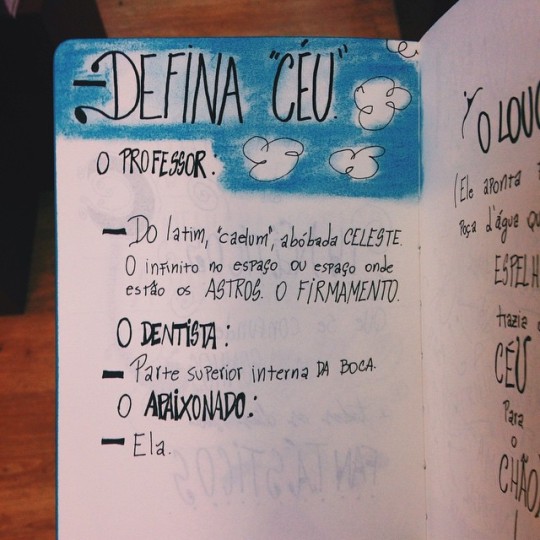 — DEFINA "CÉU."
O PROFESSOR:
— Do latim, "caelum", abóbada CELESTE.
O infinito no espaço ou espaço onde
estão os ASTROS. O FIRMAMENTO.
O DENTISTA:
— Parte superior interna DA BOCA.
O APAIXONADO:
— Ela.
O LOUC
(Ele aponta
poça d'água qu
ESPELH
trazia
CÉU
Para
o
CHÃO